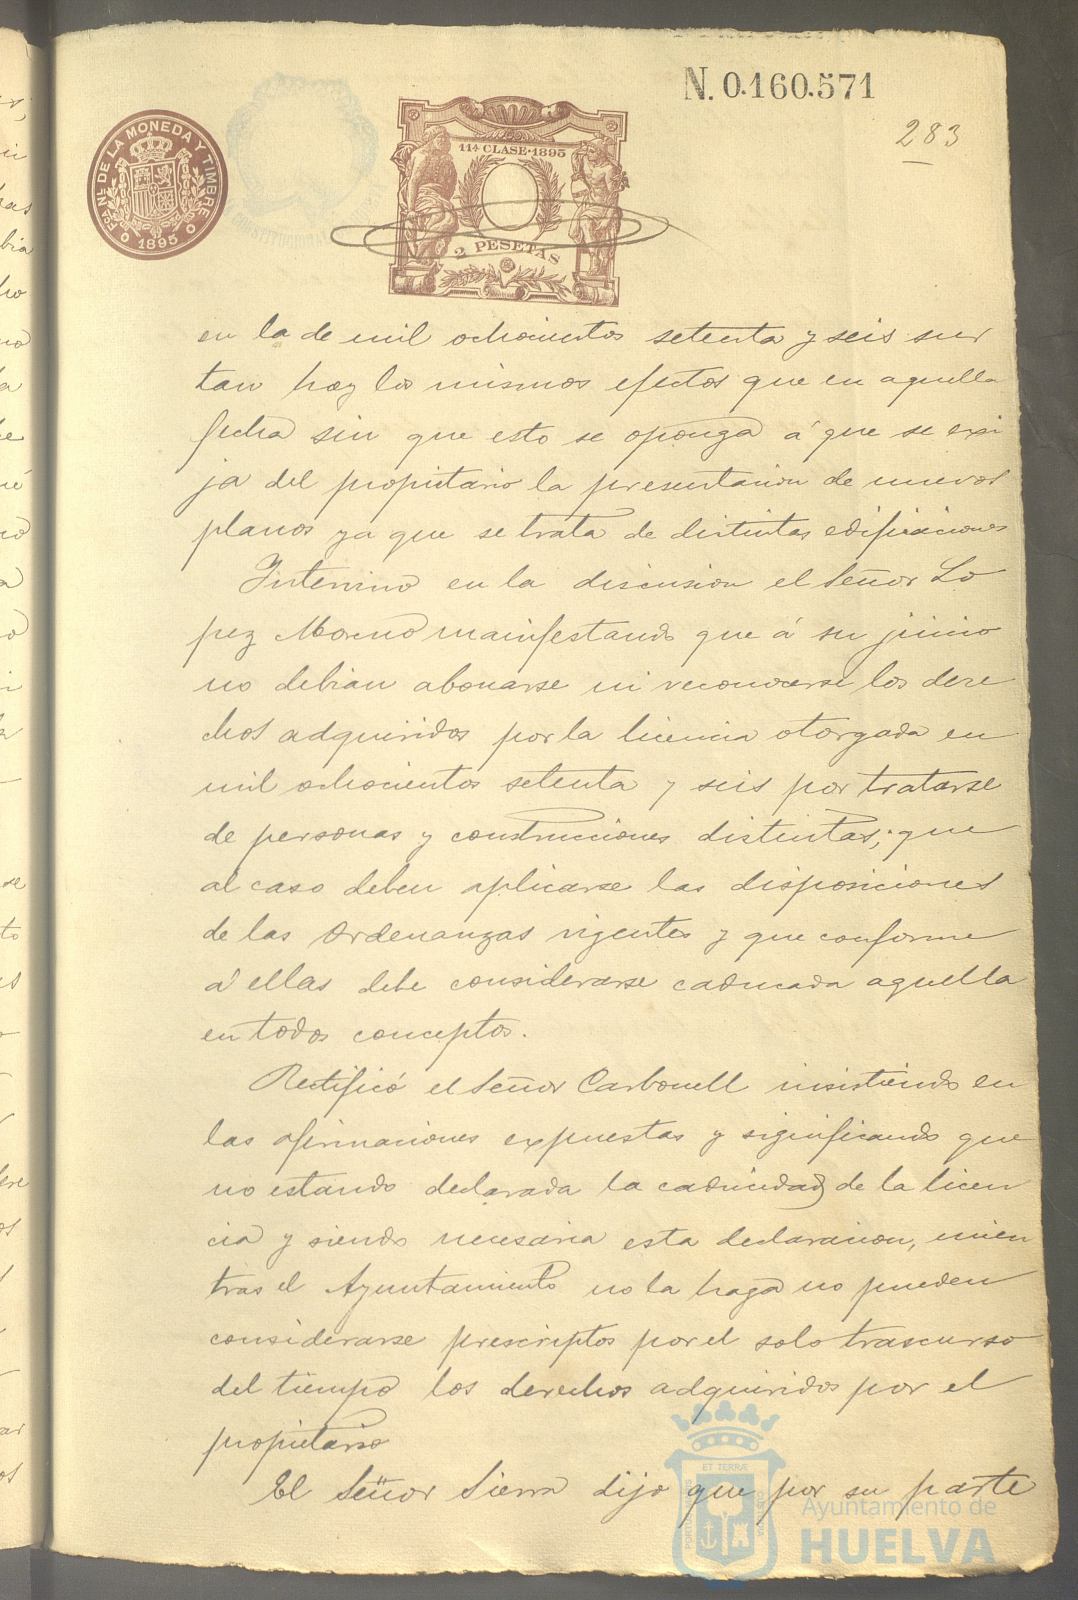 N. 0.160.571
283
FCA. NL. DE LA MONEDA Y TIMBRE
1895
CONSTITUCIONAL
11ª CLASE·1895
2 PESETAS
en la de mil ochocientos setenta y seis sur
tan hoy los mismos efectos que en aquella
fecha sin que esto se oponga á que se exi
ja del propietario la presentacion de nuevos
planos ya que se trata de distintas edificaciones
Intervino en la discusion el Señor Lo
pez Moreno manifestando que á su juicio
no debian abonarse ni reconocerse los dere
chos adquiridos por la licencia otorgada en
mil ochocientos setenta y seis por tratarse
de personas y construcciones distintas; que
al caso deben aplicarse las disposiciones
de las Ordenanzas vigentes y que conforme
á ellas debe considerarse caducada aquella
en todos conceptos.
Rectificó el Señor Carbonell insistiendo en
las afirmaciones expuestas y significando que
no estando declarada la caducidad de la licen
cia y siendo necesaria esta declaracion, mien
tras el Ayuntamiento no la haga no pueden
considerarse prescriptos por el solo trascurso
del tiempo los derechos adquiridos por el
propietario
El Señor Sierra dijo que por su parte
Ayuntamiento de
HUELVA